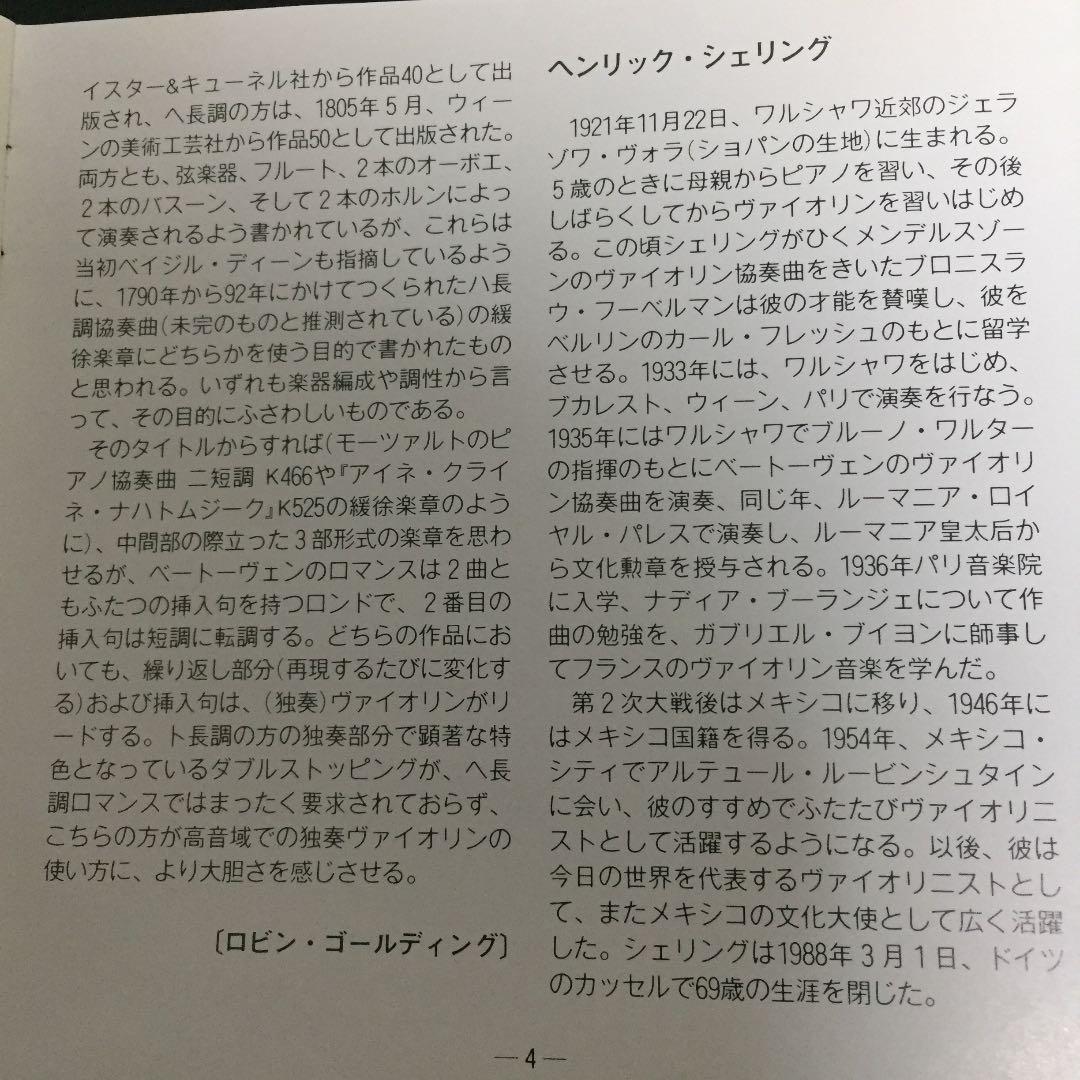 イスター&キューネル社から作品40として出
版され、ヘ長調の方は、1805年5月、ウィー
ンの美術工芸社から作品50として出版された。
両方とも、弦楽器、フルート、2本のオーボエ、
2本のバスーン、そして2本のホルンによっ
て演奏されるよう書かれているが、これらは
当初ベイジル・ディーンも指摘しているよう
に、1790年から92年にかけてつくられたハ長
調協奏曲(未完のものと推測されている)の緩
徐楽章にどちらかを使う目的で書かれたもの
と思われる。いずれも楽器編成や調性から言
って、その目的にふさわしいものである。
そのタイトルからすれば(モーツァルトのピ
アノ協奏曲 ニ短調 K466や『アイネ・クライ
ネ・ナハトムジーク』K525の緩徐楽章のよう
に)、中間部の際立った3部形式の楽章を思わ
せるが、ベートーヴェンのロマンスは2曲と
もふたつの挿入句を持つロンドで、2番目の
挿入句は短調に転調する。どちらの作品にお
いても、繰り返し部分(再現するたびに変化す
る)および挿入句は、(独奏)ヴァイオリンがリ
ードする。ト長調の方の独奏部分で顕著な特
色となっているダブルストッピングが、ヘ長
調ロマンスではまったく要求されておらず、
こちらの方が高音域での独奏ヴァイオリンの
使い方に、より大胆さを感じさせる。
〔ロビン・ゴールディング〕
ヘンリック・シェリング
1921年11月22日、ワルシャワ近郊のジェラ
ゾワ・ヴォラ(ショパンの生地)に生まれる。
5歳のときに母親からピアノを習い、その後
しばらくしてからヴァイオリンを習いはじめ
る。この頃シェリングがひくメンデルスゾー
ンのヴァイオリン協奏曲をきいたブロニスラ
ウ・フーベルマンは彼の才能を賛嘆し、彼を
ベルリンのカール・フレッシュのもとに留学
させる。1933年には、ワルシャワをはじめ、
ブカレスト、ウィーン、パリで演奏を行なう。
1935年にはワルシャワでブルーノ・ワルター
の指揮のもとにベートーヴェンのヴァイオリ
ン協奏曲を演奏、同じ年、ルーマニア・ロイ
ヤル・パレスで演奏し、ルーマニア皇太后か
ら文化勲章を授与される。1936年パリ音楽院
に入学、ナディア・ブーランジェについて作
曲の勉強を、ガブリエル・ブイヨンに師事し
てフランスのヴァイオリン音楽を学んだ。
第2次大戦後はメキシコに移り、1946年に
はメキシコ国籍を得る。1954年、メキシコ・
シティでアルテュール・ルービンシュタイン
に会い、彼のすすめでふたたびヴァイオリニ
ストとして活躍するようになる。以後、彼は
今日の世界を代表するヴァイオリニストとし
て、またメキシコの文化大使として広く活躍
した。シェリングは1988年3月1日、ドイツ
のカッセルで69歳の生涯を閉じた。
— 4 —